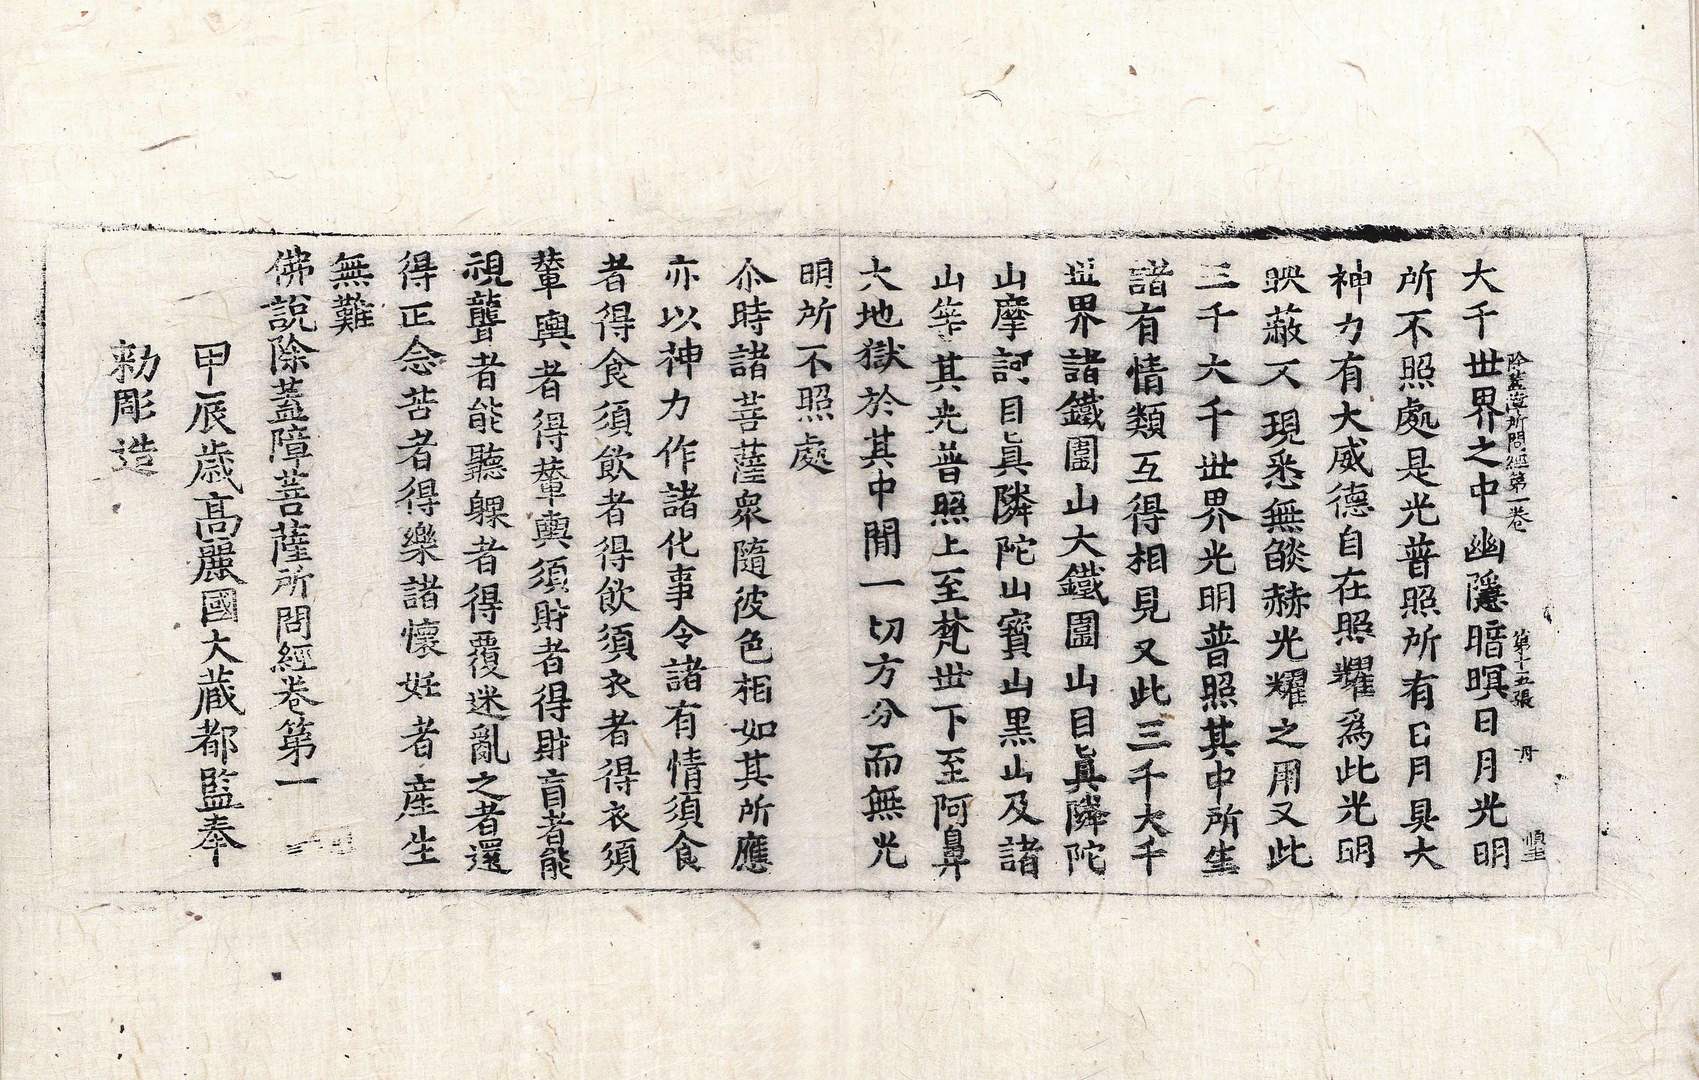 除蓋障所問經第一卷 第十五張 丹
大千世界之中幽隱暗暝日月光明
所不照處是光普照所有日月具大
神力有大威德自在照耀爲此光明
映蔽不現悉無燄赫光耀之用又此
三千大千世界光明普照其中所生
諸有情類互得相見又此三千大千
世界諸鐵圍山大鐵圍山目眞隣陀
山摩訶目眞隣陀山寶山黑山及諸
山等其光普照上至梵世下至阿鼻
大地獄於其中閒一切方分而無光
明所不照處
尒時諸菩薩衆隨彼色相如其所應
亦以神力作諸化事令諸有情須食
者得食須飲者得飲須衣者得衣須
輦輿者得輦輿須財者得財盲者能
視聾者能聽躶者得覆迷亂之者還
得正念苦者得樂諸懷妊者產生
無難
佛說除蓋障菩薩所問經卷第一
甲辰歲高麗國大藏都監奉
勅彫造